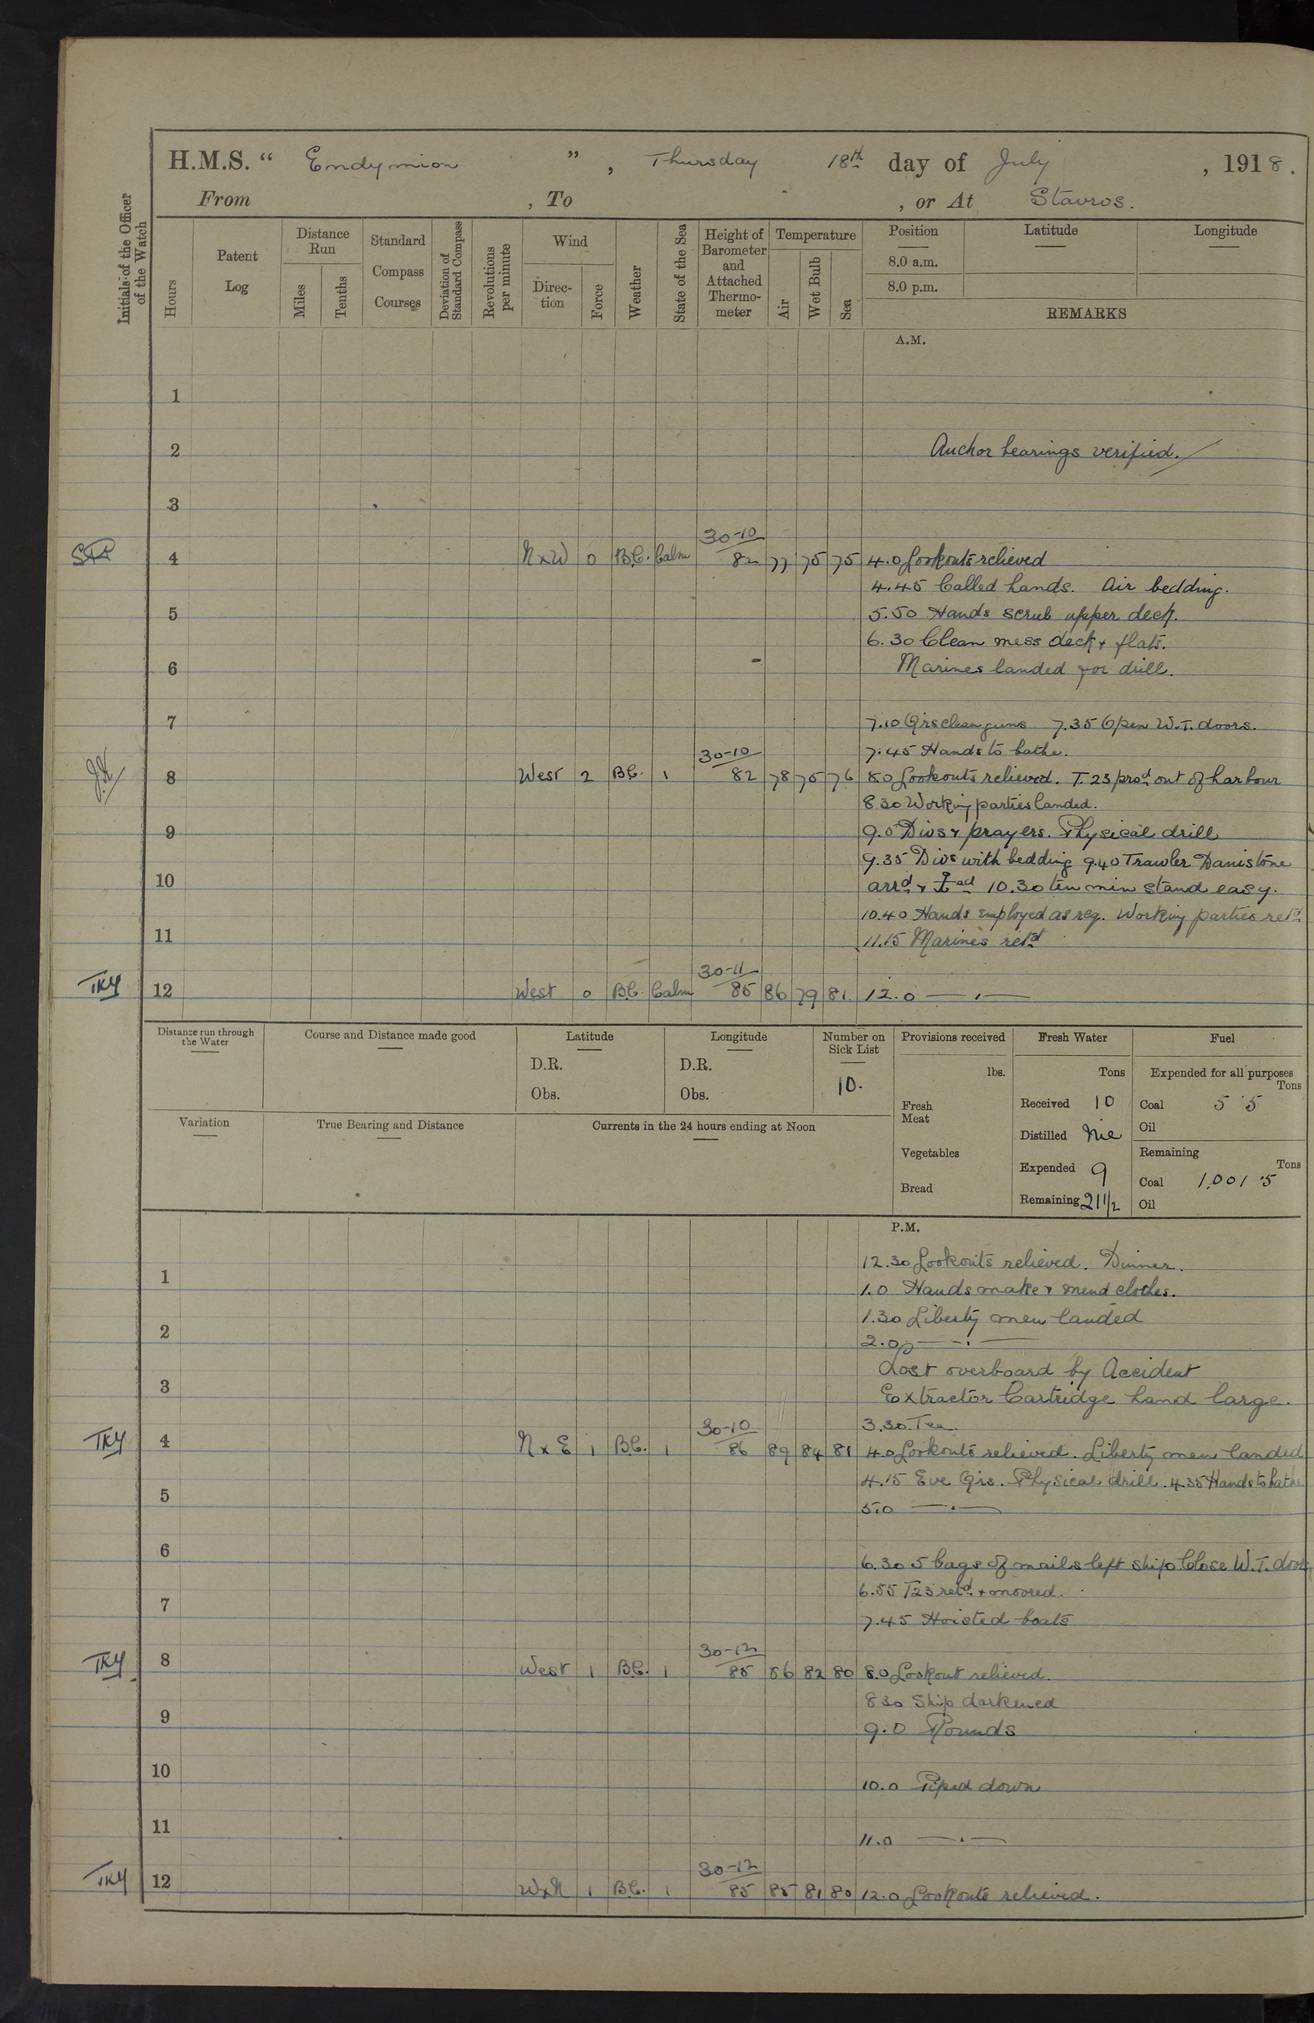 H.M.S. “ Endymion ” , Thursday 18th day of July , 1918.
From , To , or At Stavros.
Initials of the Officer of the Watch
Hours
Patent Log
Distance Run
Miles
Tenths
Standard Compass Courses
Deviation of Standard Compass
Revolutions per minute
Wind
Direction
Force
Weather
State of the Sea
Height of Barometer and Attached Thermometer
Temperature
Air
Wet Bulb
Sea
Position
8.0 a.m.
8.0 p.m.
Latitude
Longitude
REMARKS
A.M.
1
2 Anchor bearings verified.
3
30-10
4 N x W 0 B.C. Calm 82 77 75 75 4.0 Lookouts relieved
4.45 Called hands. Air bedding.
5 5.50 Hands scrub upper deck.
6.30 Clean mess deck & flats.
6 Marines landed for drill.
7 7.10 Qrs clean guns 7.35 Open W.T. doors.
30-10 7.45 Hands to bathe.
8 West 2 B.C. 1 82 78 75 76 8.0 Lookouts relieved. T. 23 procd out of harbour
8.30 Working parties landed.
9 9.0 Divs & prayers. Physical drill
9.35 Divs with bedding 9.40 Trawler Danistone
10 arrd & 10.30 ten min stand easy.
10.40 Hands employed as req. Working parties retd
11 11.15 Marines retd
30-11
TKY 12 West 0 B.C. Calm 85 86 79 81 12.0 — . —
Distance run through the Water
Course and Distance made good
Latitude
D.R.
Obs.
Longitude
D.R.
Obs.
Number on Sick List
10.
Provisions received
lbs.
Fresh Meat
Vegetables
Bread
Fresh Water
Tons
Received 10
Distilled Nil
Expended 9
Remaining 211½
Fuel
Expended for all purposes
Tons
Coal 5 .5
Oil
Remaining
Tons
Coal 1,001 .5
Oil
Variation
True Bearing and Distance
Currents in the 24 hours ending at Noon
P.M.
12.30 Lookouts relieved. Dinner.
1 1.0 Hands make & mend clothes.
1.30 Liberty men landed
2 2.0 — . —
Lost overboard by Accident
3 Extractor Cartridge hand large.
30-10 3.30 Tea.
TKY 4 N x E 1 B.C. 1 86 89 84 81 4.0 Lookouts relieved. Liberty men landed
4.15 Eve Qrs. Physical drill. 4.35 Hands to bathe
5 5.0 — . —
6 6.30 5 bags of mails left ship Close W.T. doors
6.55 T23 retd & moored.
7 7.45 Hoisted boats
30-12
TKY 8 West 1 B.C. 1 85 86 82 80 8.0 Lookout relieved.
8.30 Ship darkened
9 9.0 Rounds
10 10.0 Piped down
11 11.0 — . —
30-12
TKY 12 W x N 1 B.C. 1 85 85 81 80 12.0 Lookouts relieved.